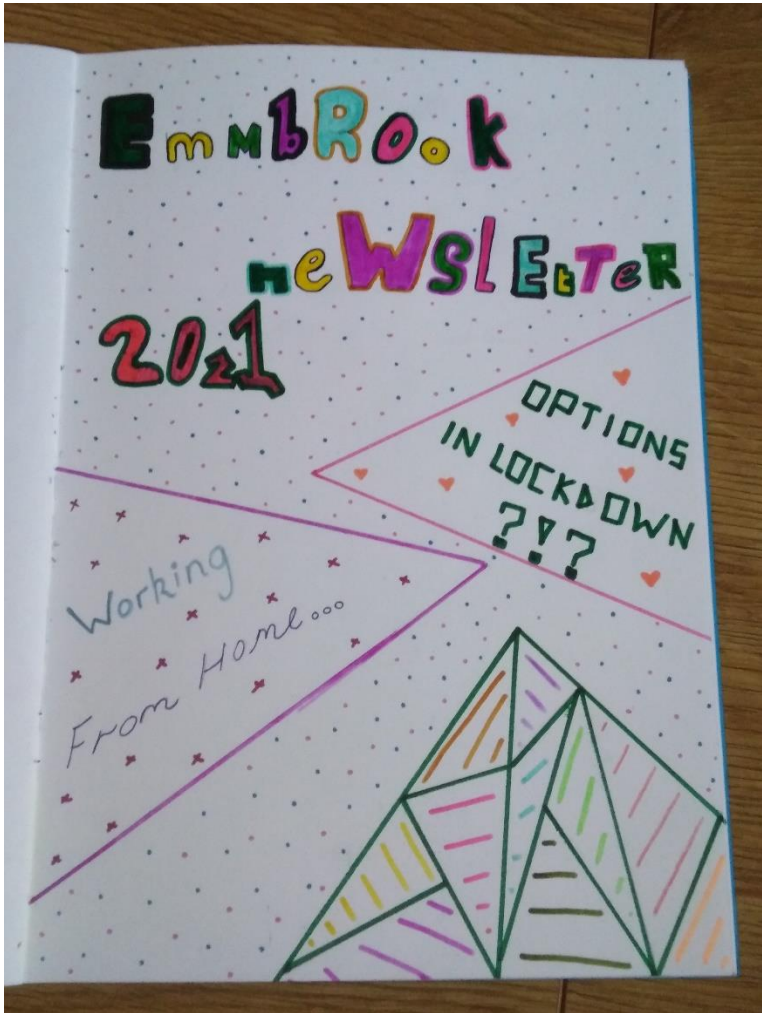 EmmbRook
neWslEtTeR
2021
OPTIONS
IN LOCKDOWN
?!?
Working
From Home...